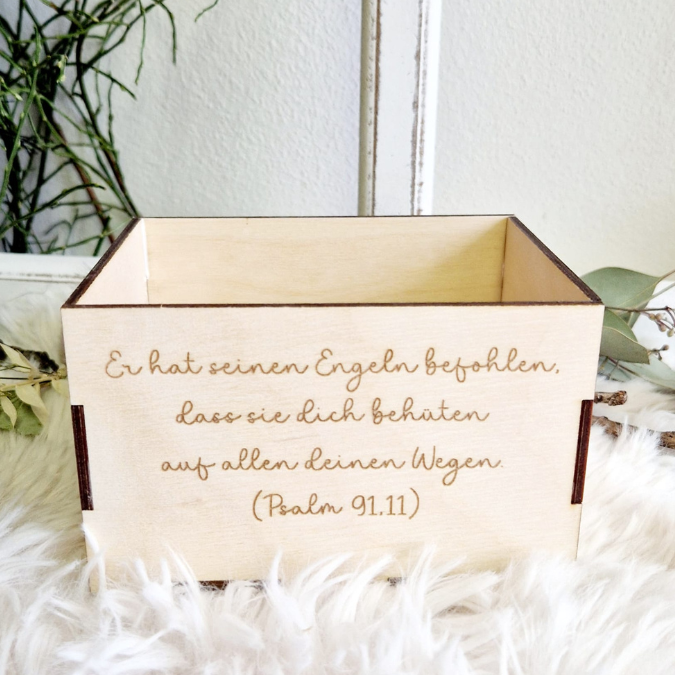 Er hat seinen Engeln befohlen,
dass sie dich behüten
auf allen deinen Wegen.
(Psalm 91,11)